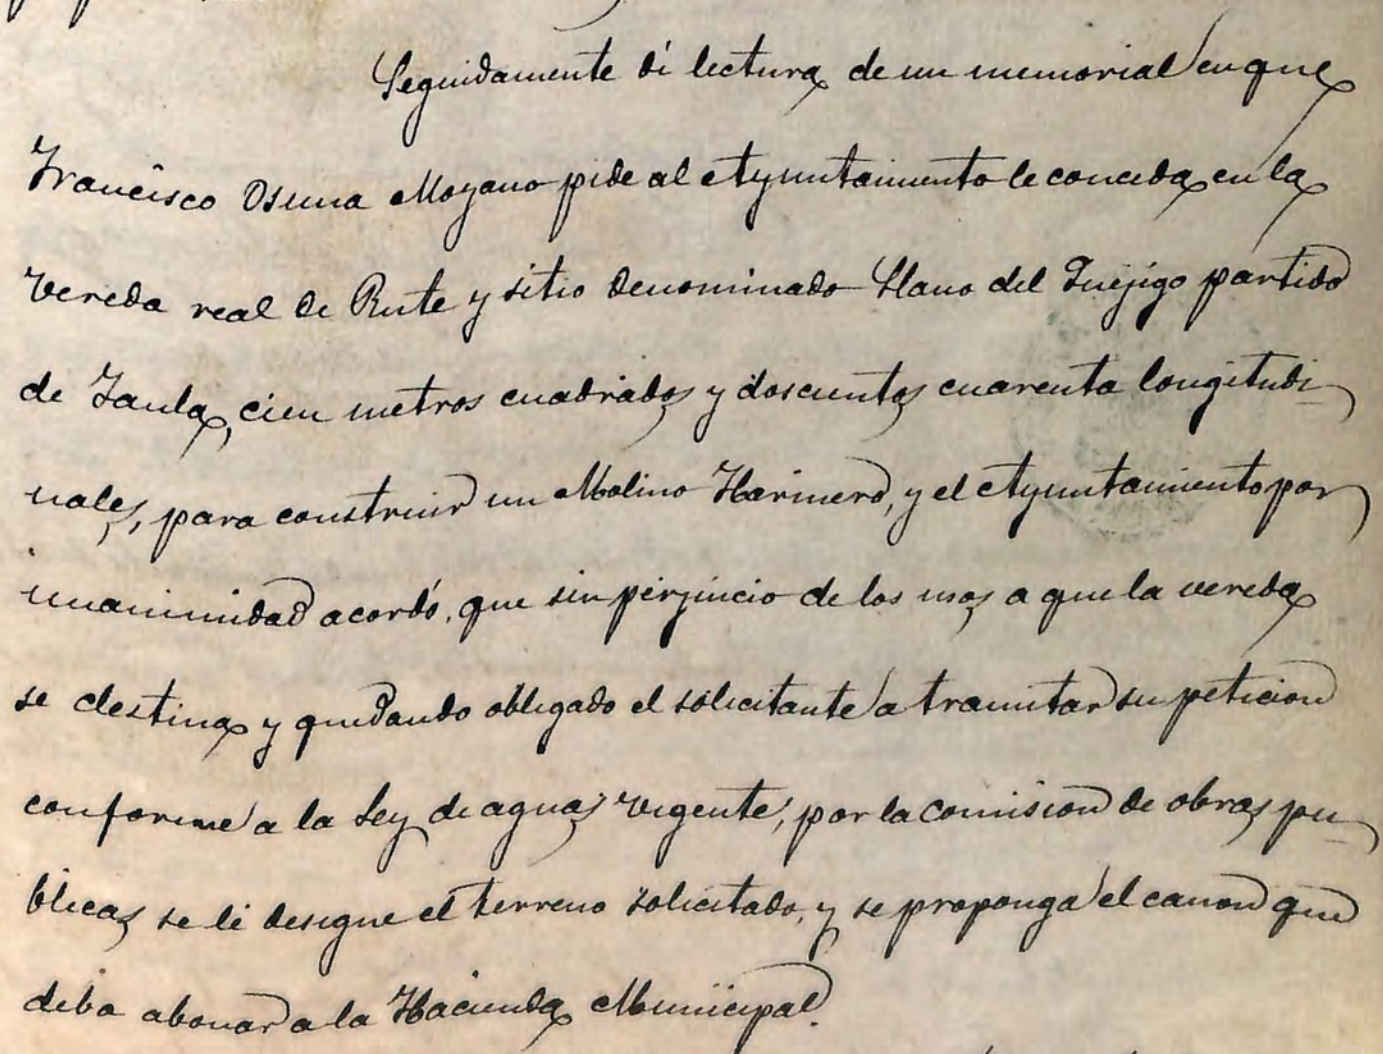 Seguidamente di lectura de un memorial en que
Francisco Osuna Moyano pide al Ayuntamiento le conceda en la
vereda real de Rute y sitio denominado Llano del Quejigo partido
de Jaula, cien metros cuadrados y doscientos cuarenta longitudi-
nales, para construir un Molino Harinero, y el Ayuntamiento por
unanimidad acordó, que sin perjuicio de los usos a que la vereda
se destina y quedando obligado el solicitante a tramitar su peticion
conforme a la Ley de aguas vigente, por la comision de obras pu-
blicas se le designe el terreno solicitado, y se proponga el canon que
deba abonar a la Hacienda Municipal.